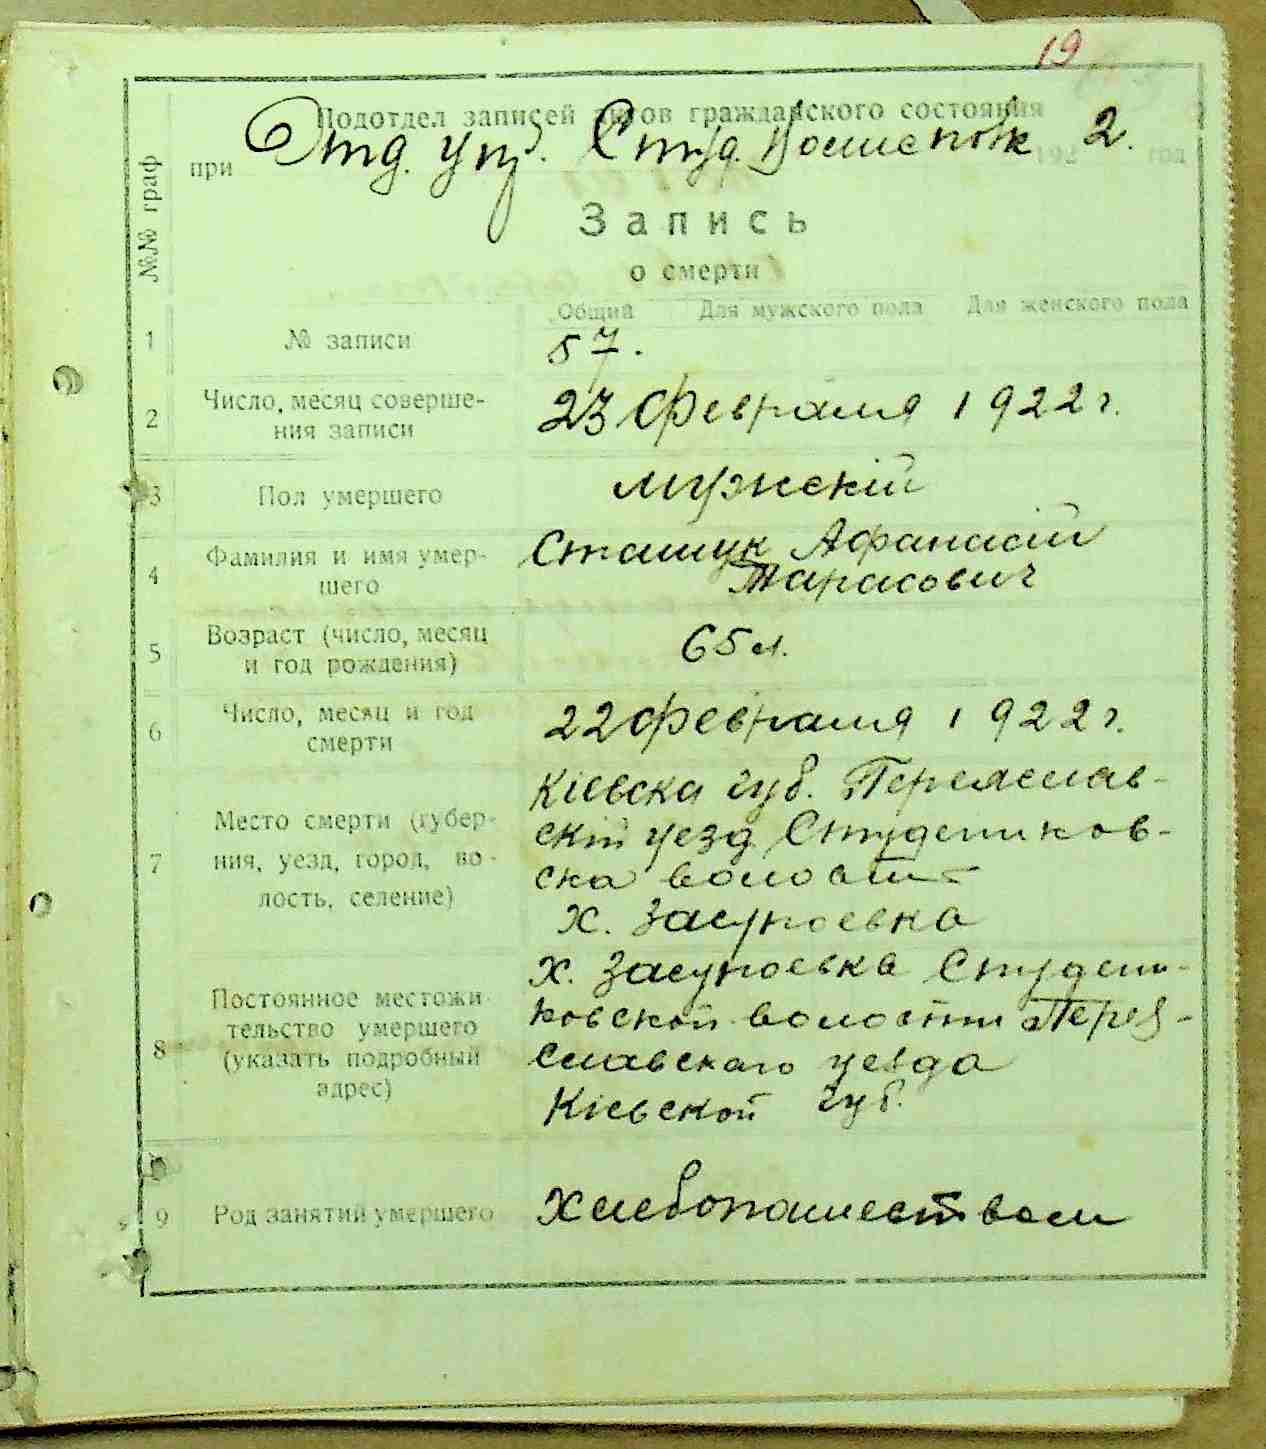 19
Подотдел записей актов гражданского состояния
при Отд. упр. Студ. Волисполк 192 2. год
Запись
о смерти
№№ граф
Общий Для мужского пола Для женского пола
1 № записи 57.
2 Число, месяц соверше-
ния записи
23 февраля 1922 г.
3 Пол умершего мужскій
4 Фамилия и имя умер-
шего
Сташук Афанасій
Тарасович
5 Возраст (число, месяц
и год рождения)
65 л.
6 Число, месяц и год
смерти
22 февраля 1922 г.
7 Место смерти (губер-
ния, уезд, город, во-
лость, селение)
Кіевска губ. Переяслав-
скій уезд Студеников-
ска волость
х. Засупоевка
8 Постоянное местожи-
тельство умершего
(указать подробный
адрес)
х. Засупоевка Студени-
ковской волости Перея-
славского уезда
Кіевской губ.
9 Род занятий умершего Хлебопашеством